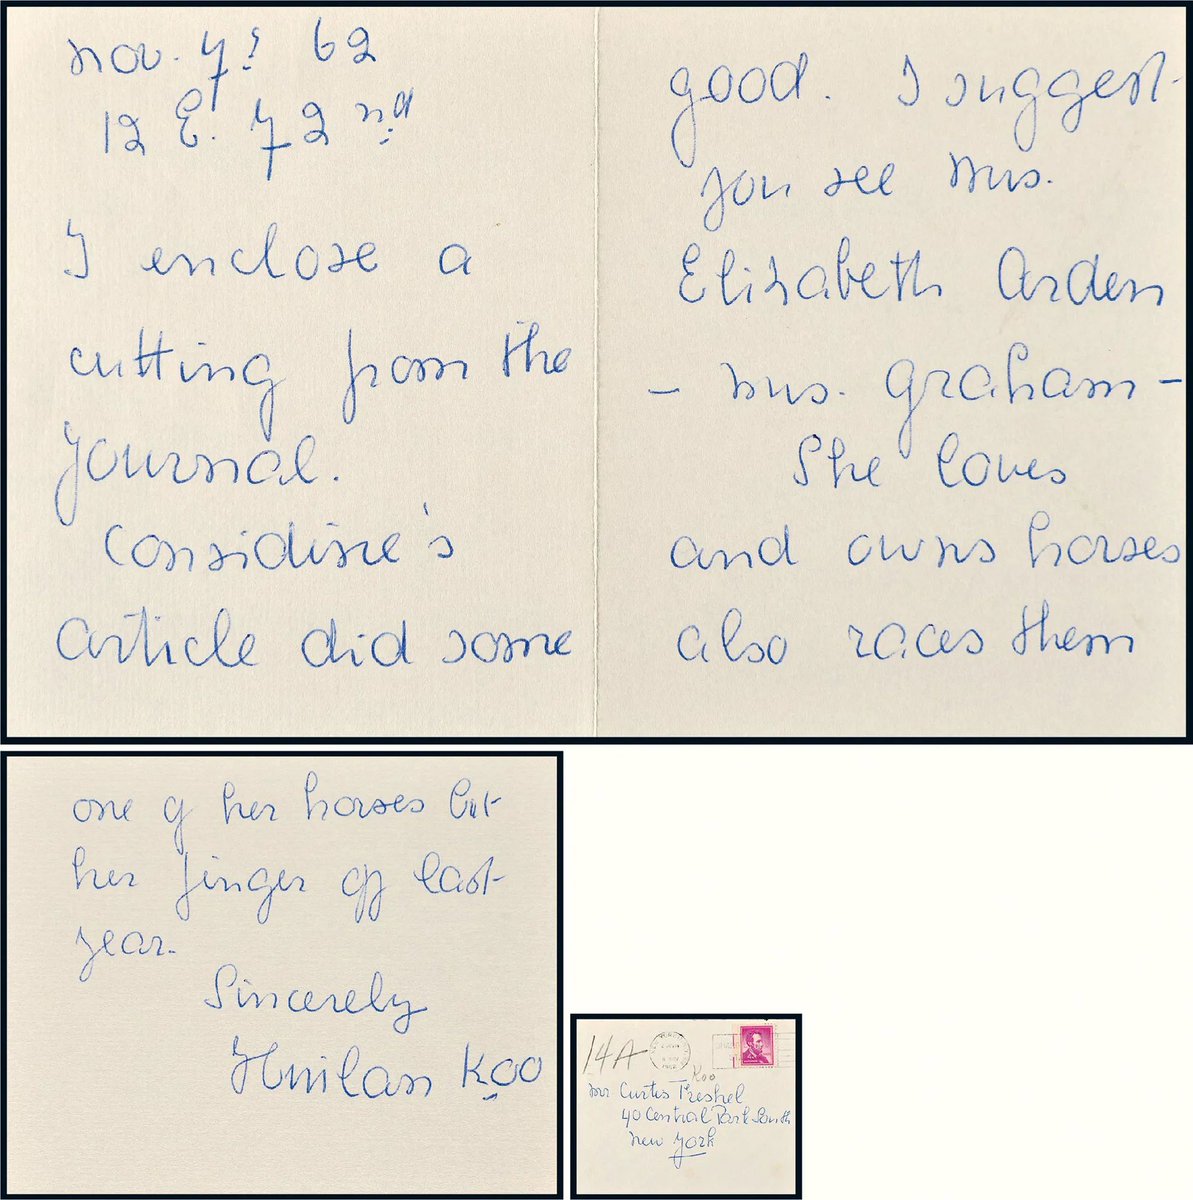 Nov. 7. 62
12 E. 72 nd
I enclose a
cutting from the
Journal.
Considine's
article did some
good. I suggest
you see Mrs.
Elizabeth Arden
- Mrs. Graham -
She loves
and owns horses
also races them
one of her horses bit
her finger off last
year.
Sincerely
Huilan Koo
14A
Koo
Mr Curtis Freshel
40 Central Park South
New York